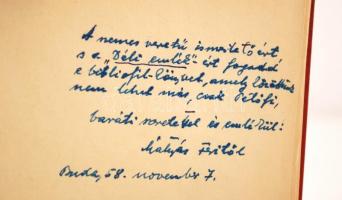 A nemes veretű ismertetőért
s a "Déli emlék"-ért fogadd
e bibliofil-könyvet, amely közöttünk
nem lehet más, csak Petőfi,
baráti szeretettel és emlékül:
Mátyás Feritől
Buda, 58. november 7.